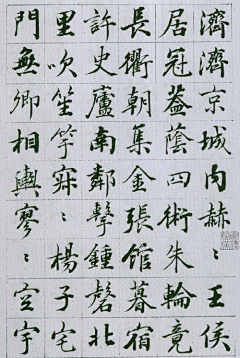 濟濟京城内赫〻王侯
居冠葢蔭四術朱輪竟
長衢朝集金張館暮宿
許史廬南鄰擊鍾磬北
里吹笙竽寂〻楊子宅
門無卿相輿寥〻空宇